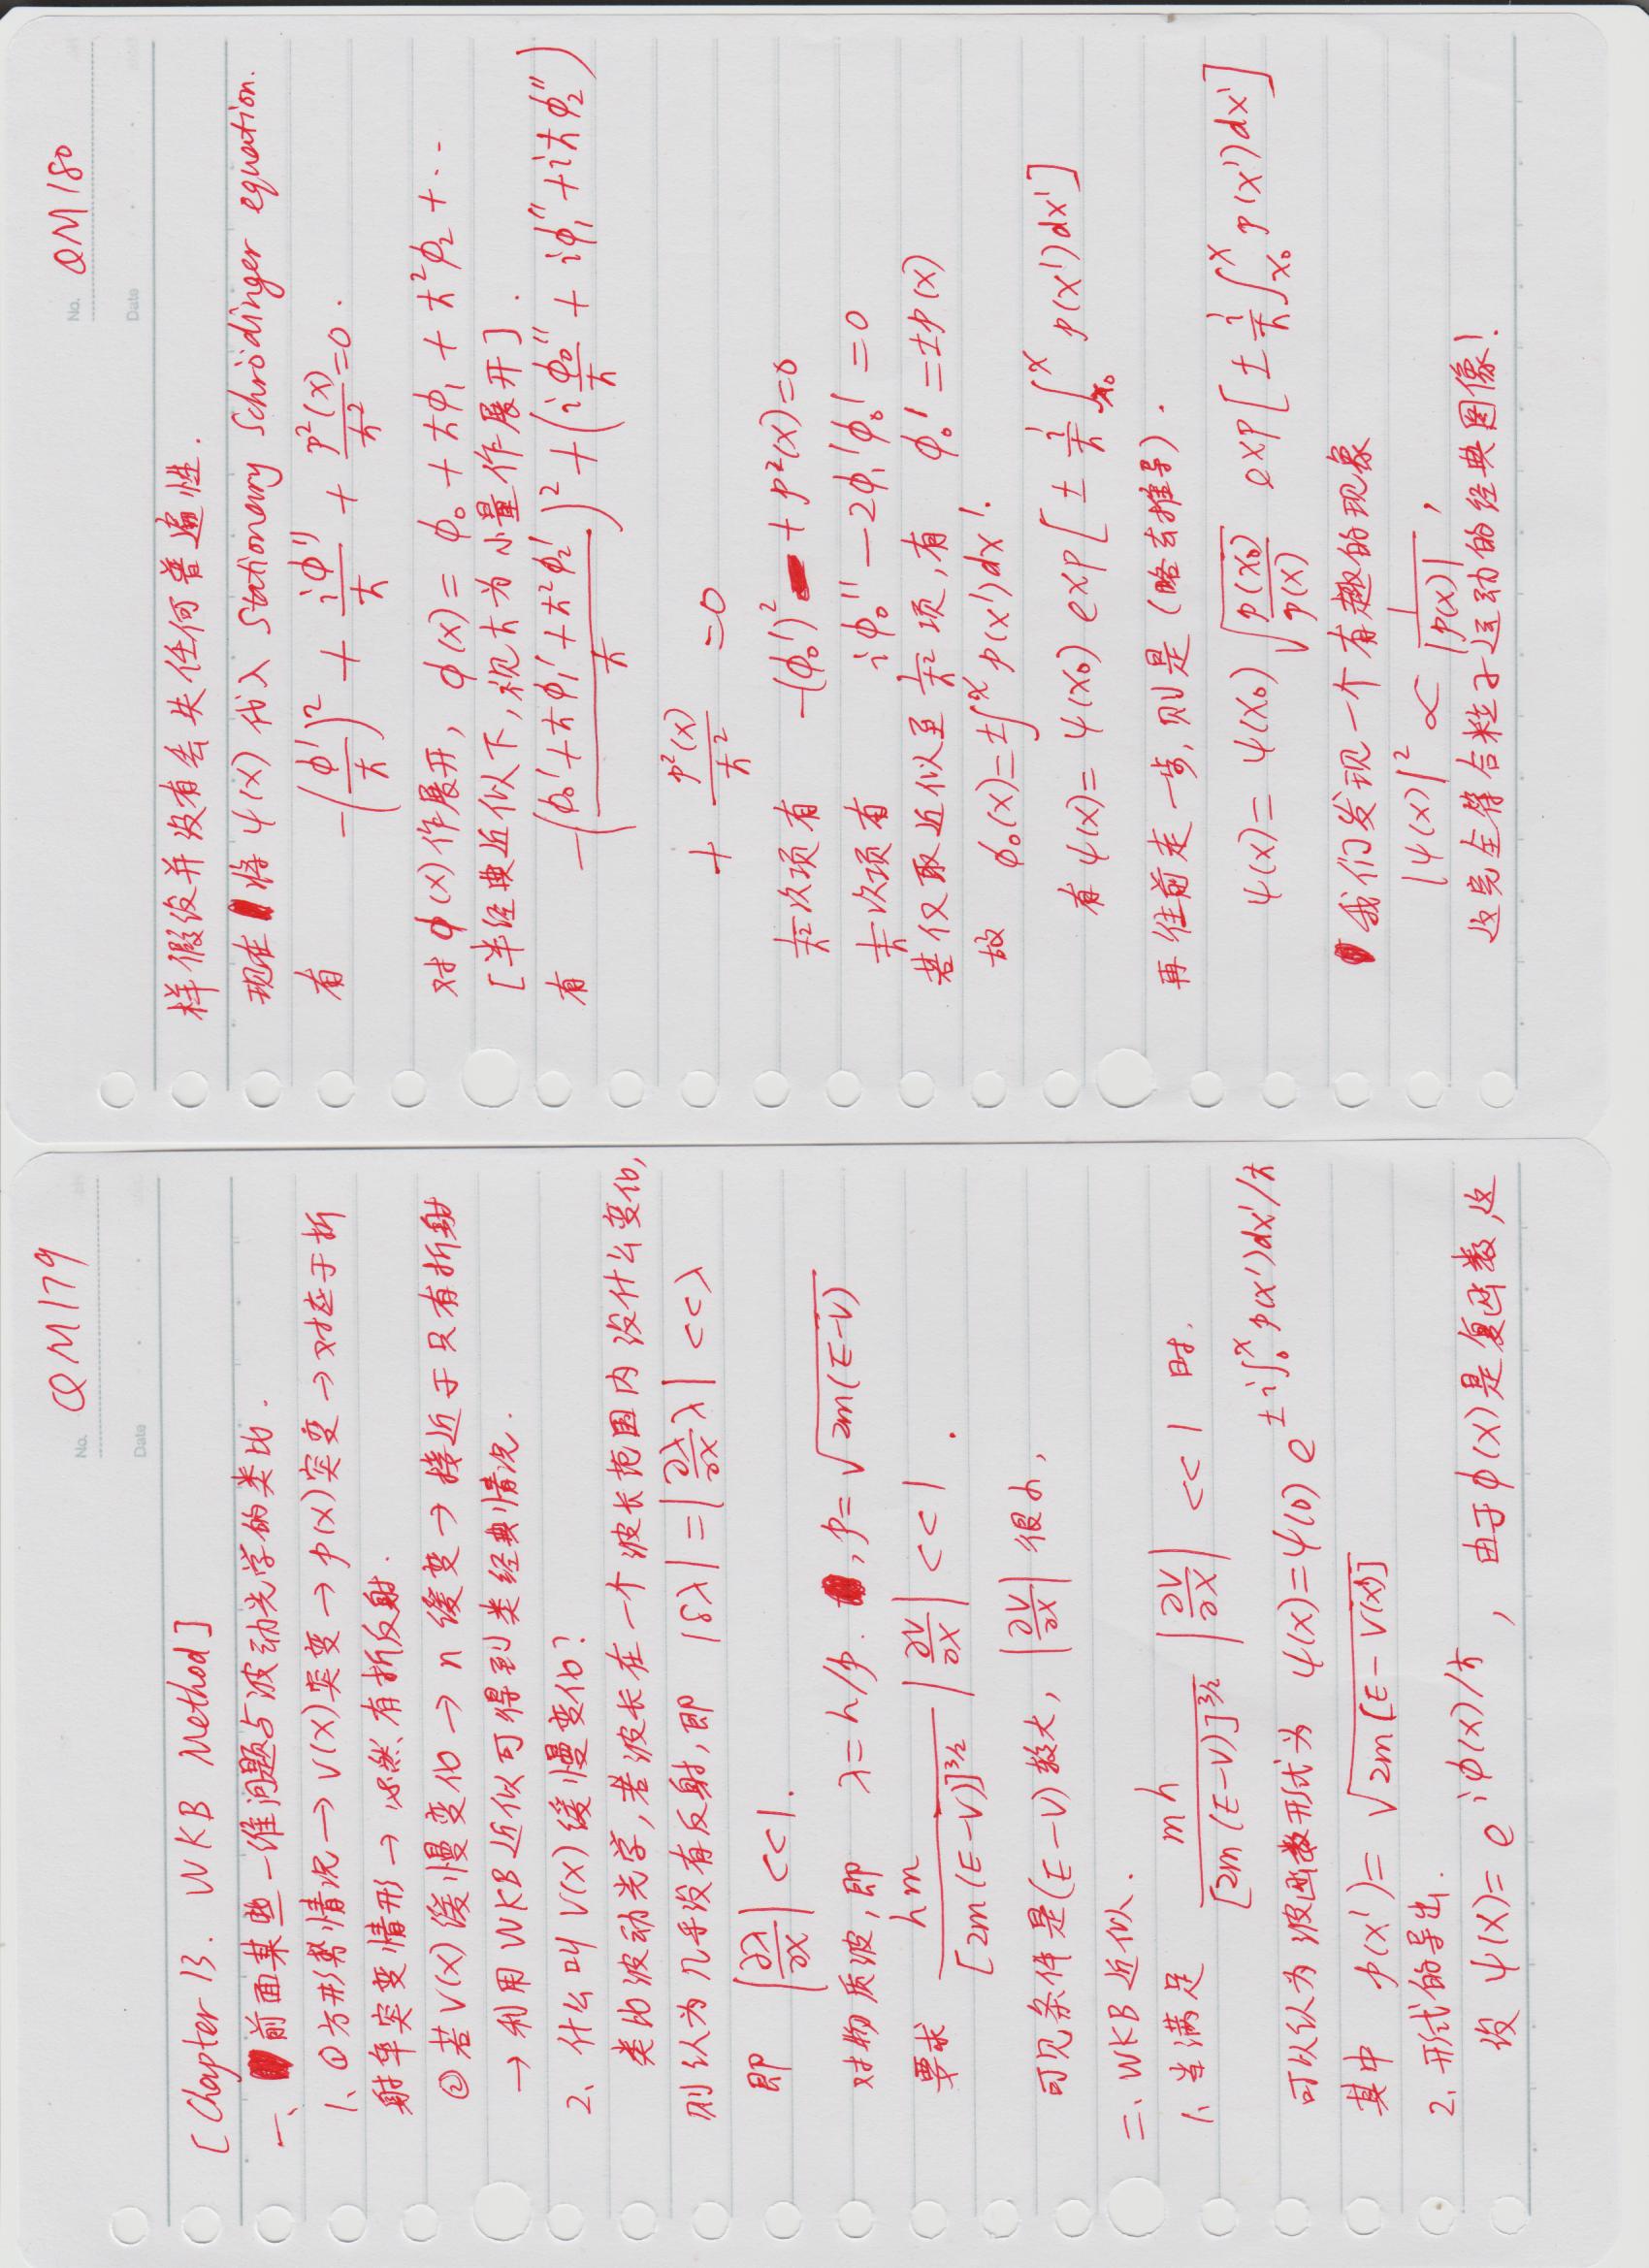 No. QM179
Date
[Chapter 13. WKB Method]
一、前面某些一维问题与波动光学的类比.
1、①方形势情况→V(x)突变→p(x)突变→对应于折
射率突变情形→必然有折反射.
②若V(x)缓慢变化→n缓变→接近于只有折射
→利用WKB近似可得到类经典情况.
2、什么叫V(x)缓慢变化?
类比波动光学,若波长在一个波长范围内没什么变化,
则认为几乎没有反射,即 |δλ|=|∂λ/∂x λ|<<λ
即 |∂λ/∂x|<<1.
对物质波,即 λ=h/p. ,p=√(2m(E-V))
要求 hm/[2m(E-V)]^{3/2} |∂V/∂x|<<1.
可见条件是(E-V)较大,|∂V/∂x|很小,
二、WKB近似.
1、当满足 mh/[2m(E-V)]^{3/2} |∂V/∂x|<<1 时.
可以认为波函数形式为 ψ(x)=ψ(0)e^{±i∫₀^x p(x')dx'/ħ}
其中 p(x')=√(2m[E-V(x')])
2、形式的导出.
设 ψ(x)=e^{iϕ(x)/ħ}, 由于ϕ(x)是复函数,这
No. QM180
Date
样假设并没有丢失任何普遍性.
现在将ψ(x)代入 Stationary Schrödinger equation.
有 -(ϕ'/ħ)²+iϕ''/ħ+p²(x)/ħ²=0.
对ϕ(x)作展开, ϕ(x)=ϕ₀+ħϕ₁+ħ²ϕ₂+...
[半经典近似下,视ħ为小量作展开].
有 -((ϕ₀'+ħϕ₁'+ħ²ϕ₂')/ħ)²+(iϕ₀''/ħ+iϕ₁''+iħϕ₂'')
+p²(x)/ħ²=0
1/ħ²次项有 -(ϕ₀')²+p²(x)=0
1/ħ次项有 iϕ₀''-2ϕ₁'ϕ₀'=0
若仅取近似至1/ħ²项,有 ϕ₀'=±p(x)
故 ϕ₀(x)=±∫^x p(x')dx'.
有ψ(x)=ψ(x₀)exp[±i/ħ∫_{x₀}^x p(x')dx']
再往前走一步,则是(略去推导).
ψ(x)=ψ(x₀)√(p(x₀)/p(x)) exp[±i/ħ∫_{x₀}^x p(x')dx']
我们发现一个有趣的现象
|ψ(x)|²∝1/|p(x)|,
这完全符合粒子运动的经典图像!